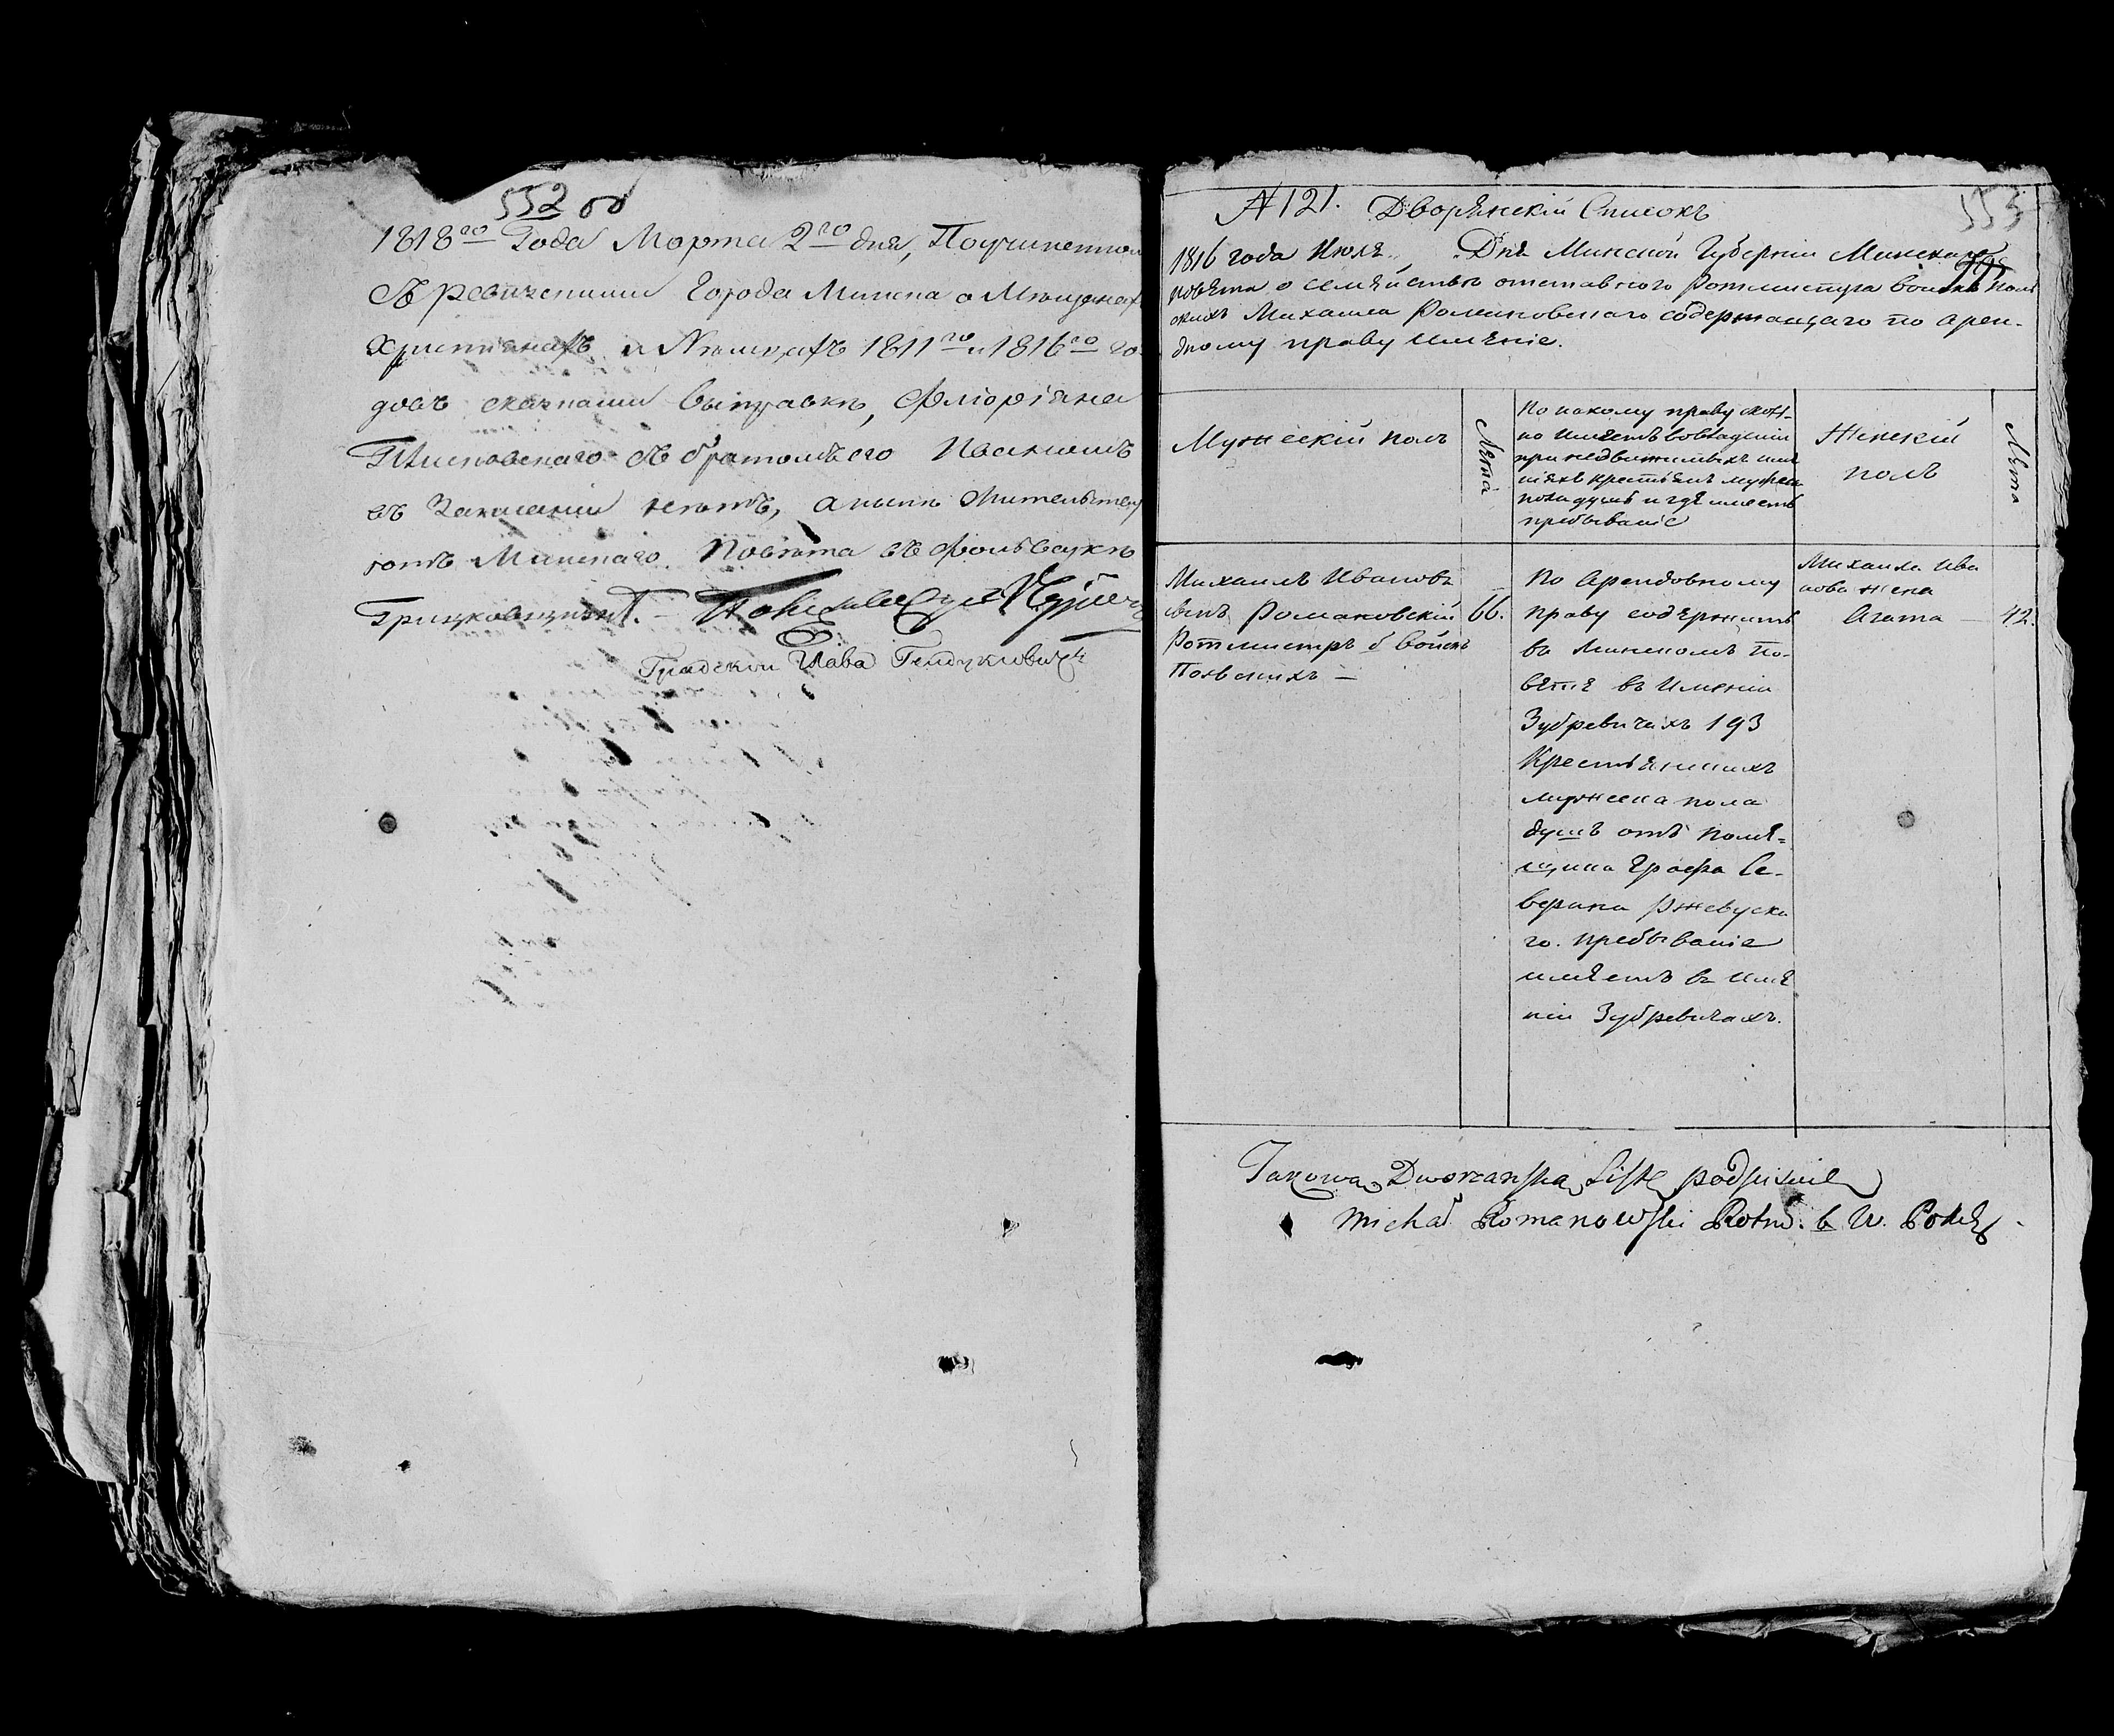 552 об
1818го Года Марта 2го дня, По учиненной
съ ревизскими Города Минска о Мещанах
Христианахъ и 1811го и 1816го го
довъ сказками выправке, Флиоріяна
съ братомъ его Иваномъ
въ нетъ, а ныне жительству
ютъ Минскаго Повета въ фольварке
Градской Глава
553
№ 121. Дворянскій Списокъ
1816 года Июля Дня Минской Губерніи Минскаго
повѣта о семѣйствѣ отставного Ротмистра войскъ поль
скихъ Михаила Романовскаго содержащаго по арен-
дному праву имѣніе.
Мужескій полъ
Лѣта
По какому праву
но имѣетъ во владеніи
при недвижимыхъ имѣ
ніяхъ крестьянъ мужеска
пола душъ и где имеетъ
пребываніе
Женскій
полъ
Лѣта
Михаилъ Ивановъ
сынъ Романовскій
Ротмистръ б войскъ
Польскихъ —
66.
По Арендовному
праву содержитъ
въ Минскомъ По-
вѣтѣ въ Имѣніи
Зубревичахъ 193
Крестьянскихъ
мужеска пола
душъ отъ помѣ-
щика Графа Се-
верина Ржевуска
го. пребываніе
имѣетъ въ имѣ
ніи Зубревичахъ.
Михаила Ива
нова жена
Агата —
42.
Takową Dworzańską Listę podpisuię
Michał Romanowski Rotm. b W. Polsk.